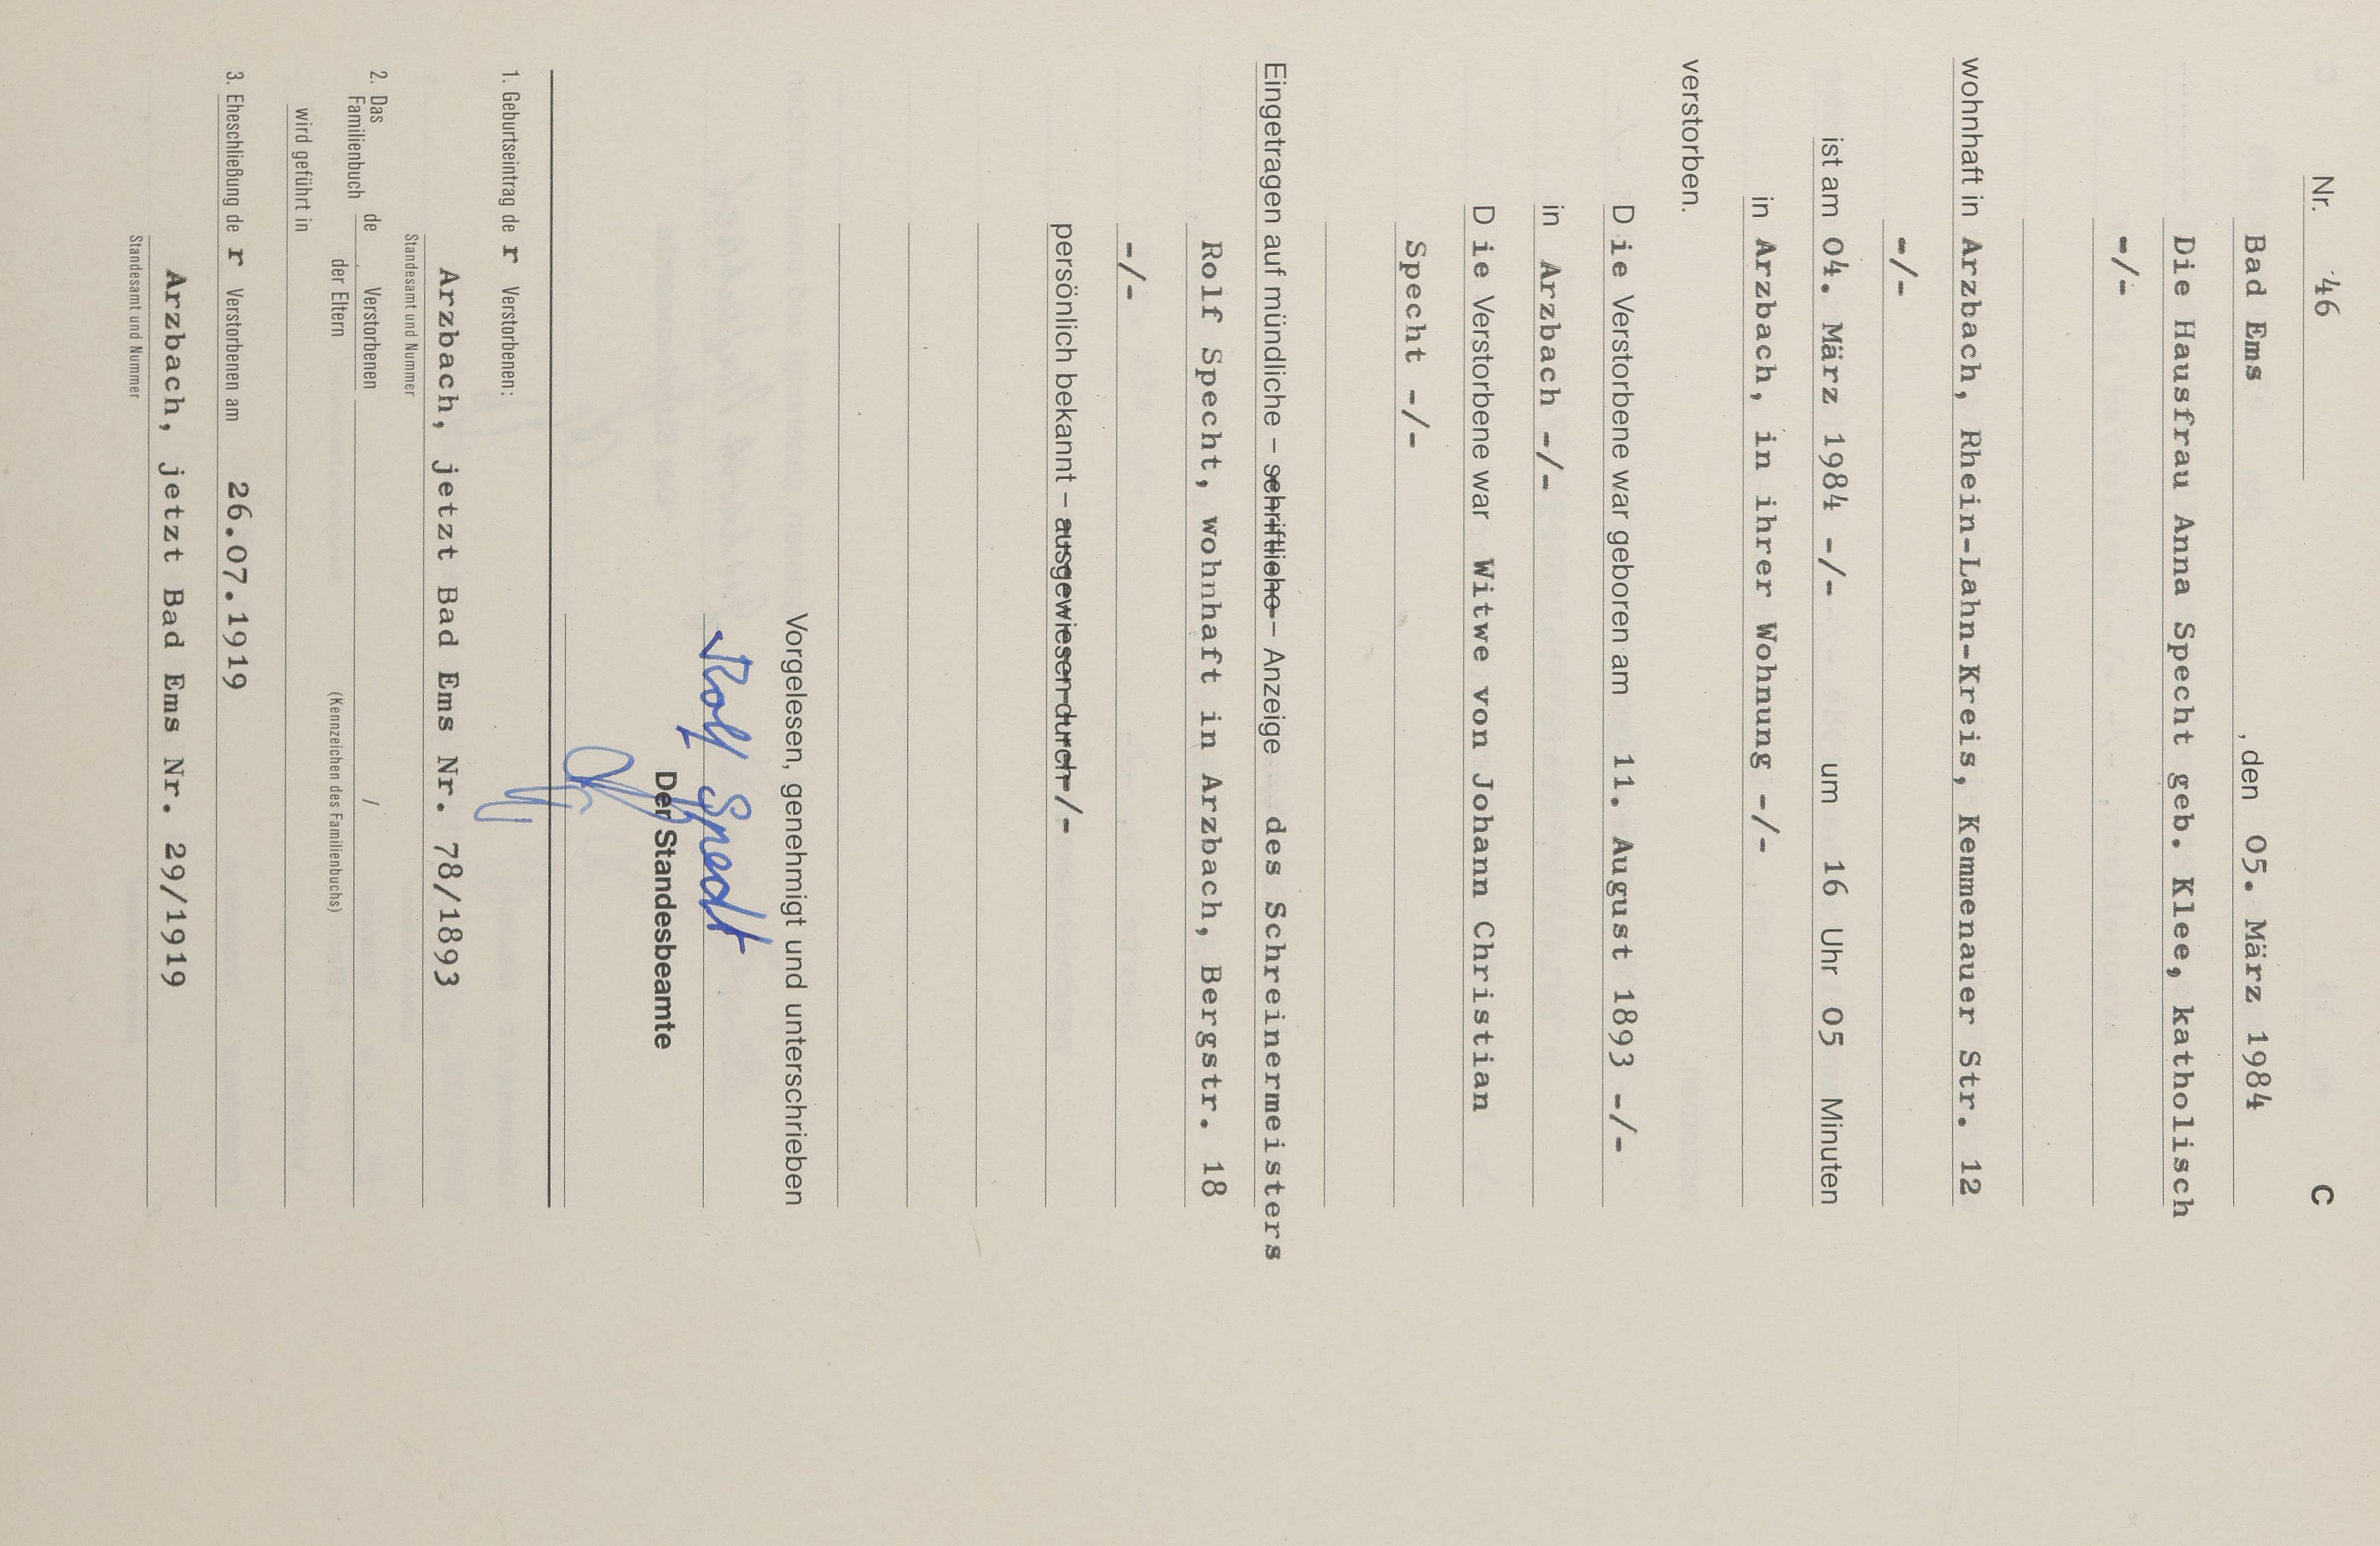 Nr. 46 C
Bad Ems , den 05. März 1984
Die Hausfrau Anna Specht geb. Klee, katholisch
-/-
wohnhaft in Arzbach, Rhein-Lahn-Kreis, Kemmenauer Str. 12
-/-
ist am 04. März 1984 -/- um 16 Uhr 05 Minuten
in Arzbach, in ihrer Wohnung -/-
verstorben.
Die Verstorbene war geboren am 11. August 1893 -/-
in Arzbach -/-
Die Verstorbene war Witwe von Johann Christian
Specht -/-
Eingetragen auf mündliche – schriftliche – Anzeige des Schreinermeisters
Rolf Specht, wohnhaft in Arzbach, Bergstr. 18
-/-
persönlich bekannt – ausgewiesen durch -/-
Vorgelesen, genehmigt und unterschrieben
Rolf Specht
Der Standesbeamte
1. Geburtseintrag der Verstorbenen:
Arzbach, jetzt Bad Ems Nr. 78/1893
Standesamt und Nummer
2. Das Familienbuch de Verstorbenen / der Eltern
(Kennzeichen des Familienbuchs)
wird geführt in
3. Eheschließung der Verstorbenen am 26.07.1919
Arzbach, jetzt Bad Ems Nr. 29/1919
Standesamt und Nummer